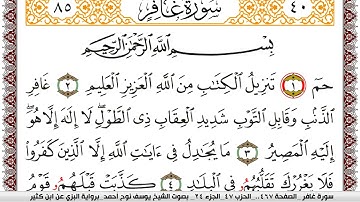 ٤٠ سُورَةُ غَافِر ٨٥
بِسْمِ اللَّهِ الرَّحْمَٰنِ الرَّحِيمِ
حمٓ ١ تَنزِيلُ الْكِتَابِ مِنَ اللَّهِ الْعَزِيزِ الْعَلِيمِ ٢ غَافِرِ
الذَّنۢبِ وَقَابِلِ التَّوْبِ شَدِيدِ الْعِقَابِ ذِى الطَّوْلِ لَا إِلَٰهَ إِلَّا هُوَ
إِلَيْهِ الْمَصِيرُ ٣ مَا يُجَٰدِلُ فِىٓ ءَايَٰتِ اللَّهِ إِلَّا الَّذِينَ كَفَرُوا
فَلَا يَغْرُرْكَ تَقَلُّبُهُمُ فِى الْبِلَٰدِ ٤ كَذَّبَتْ قَبْلَهُمُ قَوْمُ
سورة غافر الصفحة ٤٦٧.. الحزب ٤٧ ..الجزء ٢٤.. بصوت الشيخ يوسف نوح أحمد ..برواية البزي عن ابن كثير